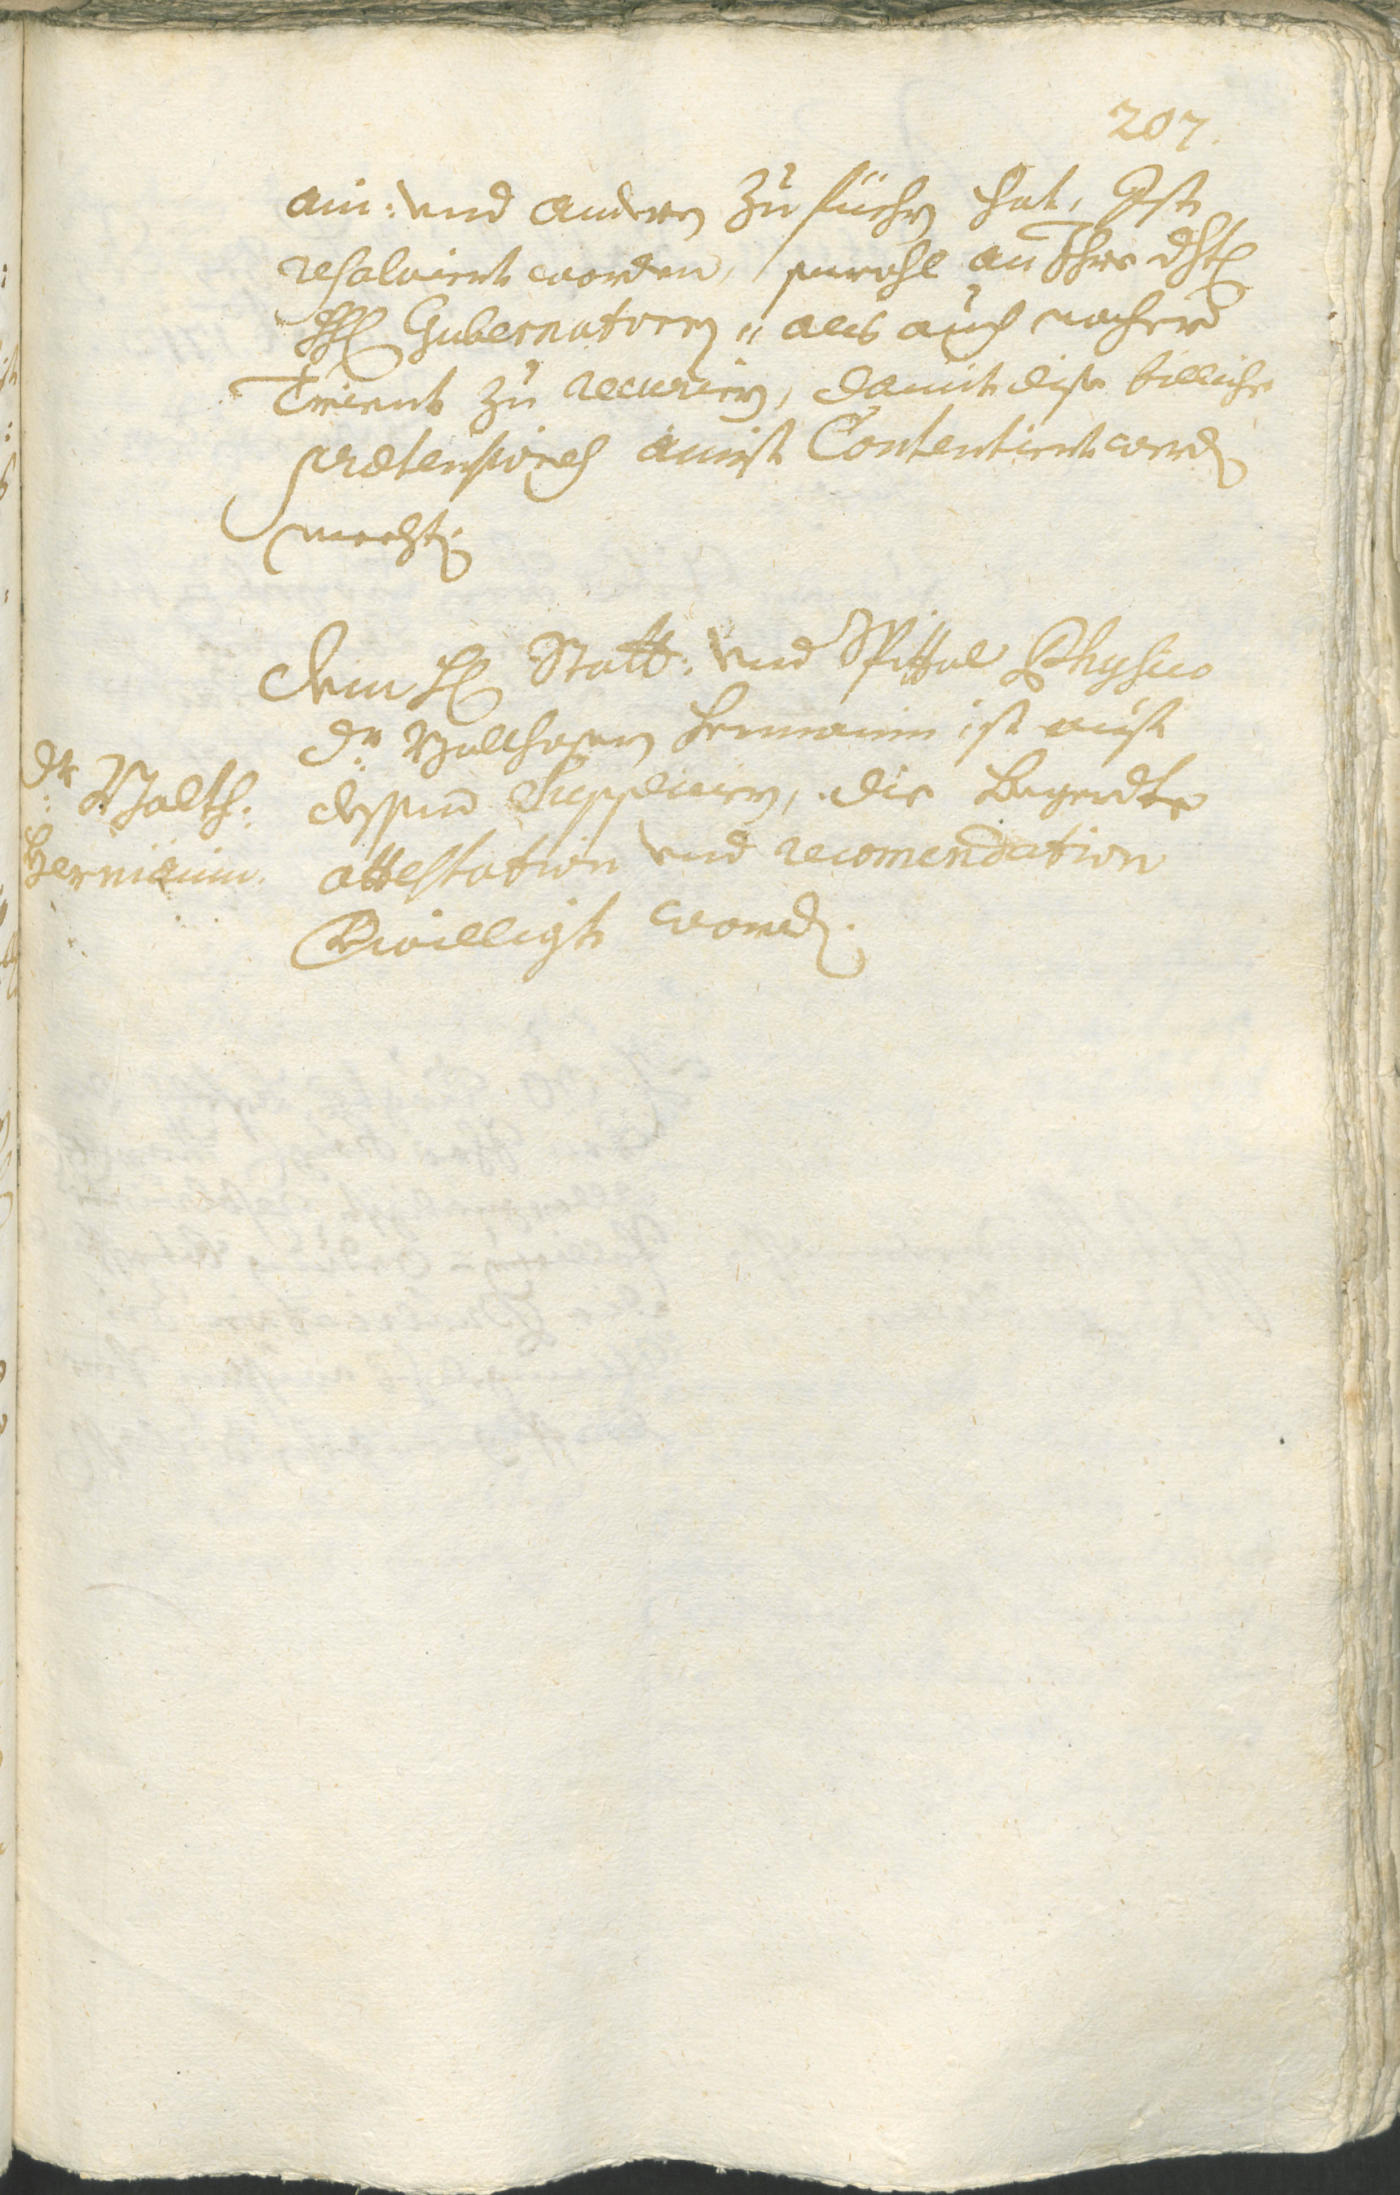 207.
ain: vnd anderen zu suechen hat, Ist
resolviert worden, sowohl an Ihro
Gubernatorn, als auch nacher
Trient zu recuriern, damit dise billiche
praetensiones Contentiert werden
mechte.
Dem H Statt: vnd Spittal Physico
Dr: Balthasarn Hermanin ist auf
dessen Suppliciern, die begerdte
attestation vnd recomendation
Bewilligt worden.
Dr: Balth:
Hermanin.